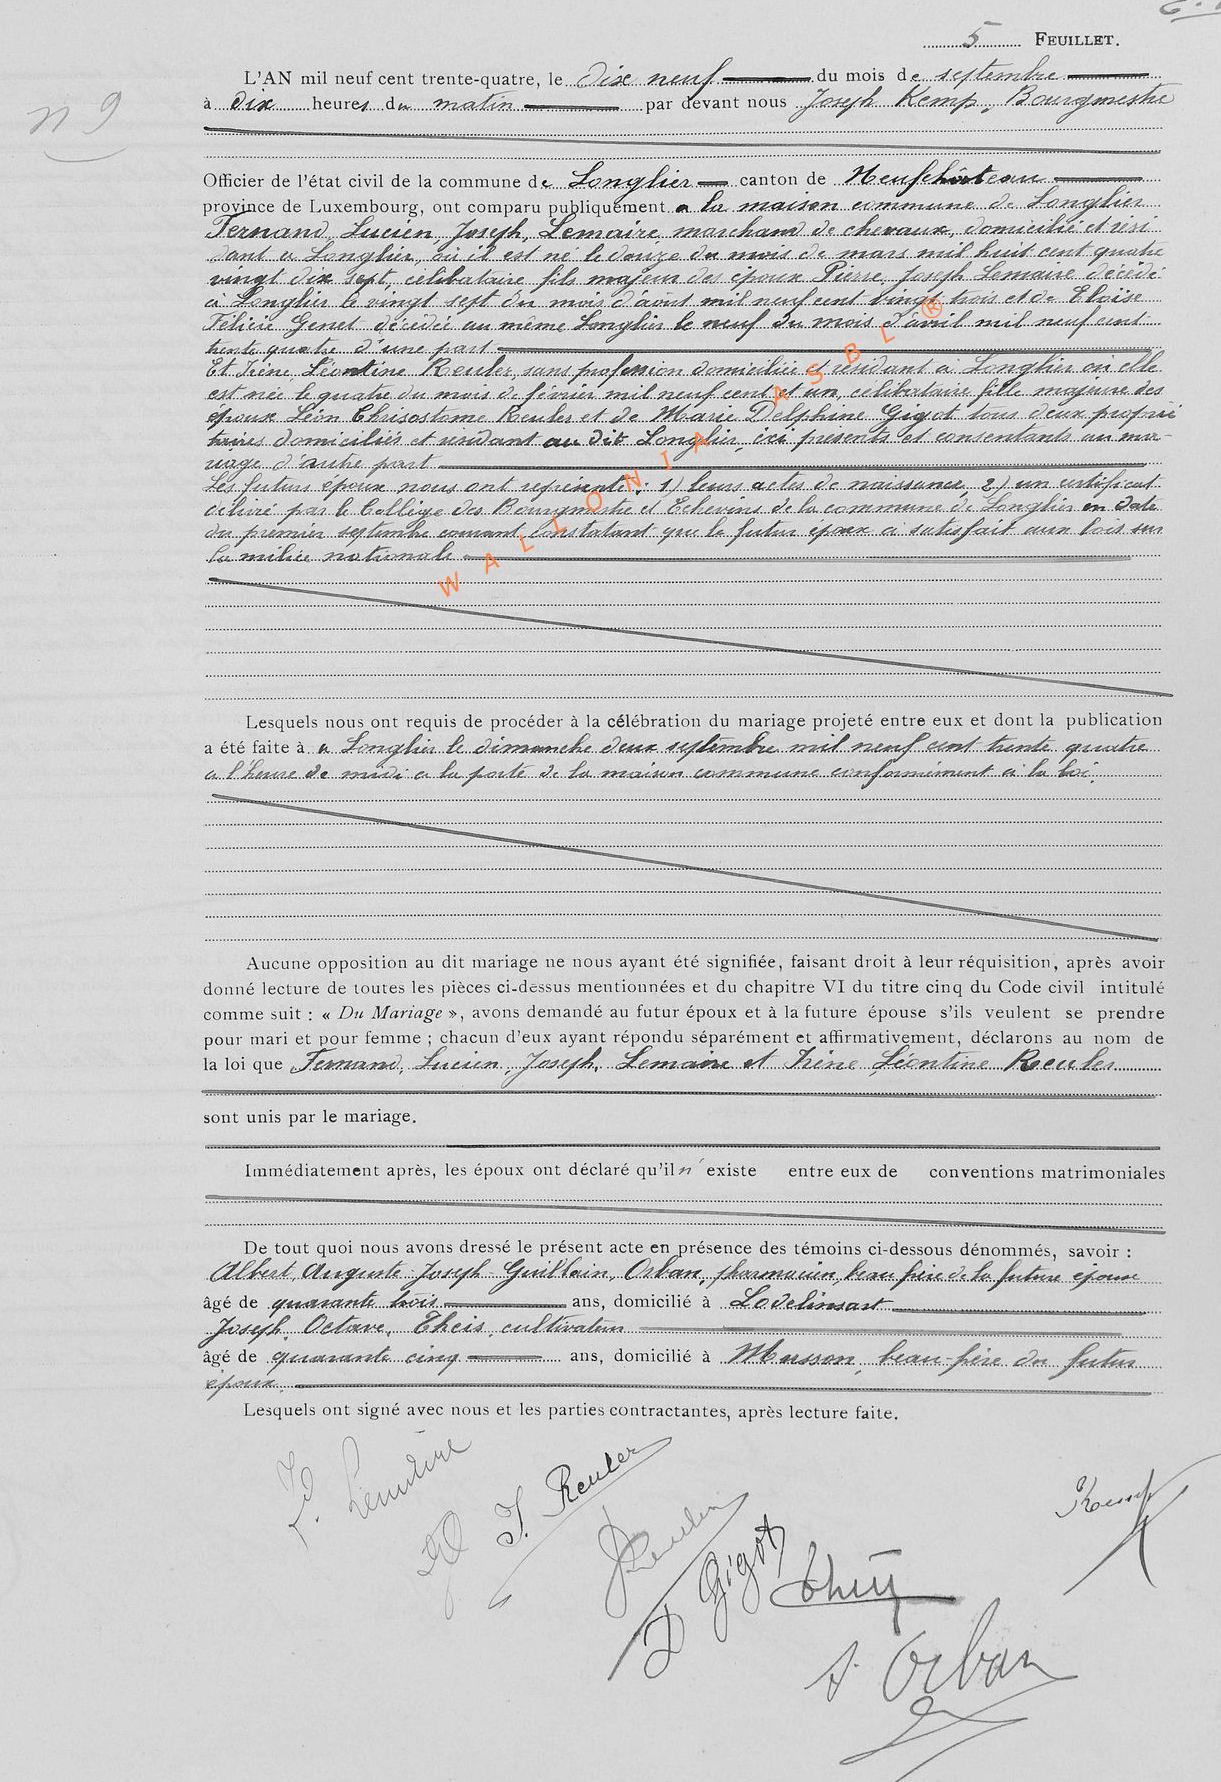 5 FEUILLET.
L'AN mil neuf cent trente-quatre, le dix neuf du mois de septembre
n 9
à dix heures du matin par devant nous Joseph Kemp, Bourgmestre
Officier de l'état civil de la commune de Longlier canton de Neufchâteau
province de Luxembourg, ont comparu publiquement a la maison commune de Longlier
Fernand, Lucien, Joseph, Lemaire, marchand de chevaux, domicilié et rési
dant à Longlier, où il est né le douze du mois de mars mil huit cent quatre
vingt dix sept, célibataire fils majeur des époux Pierre, Joseph Lemaire décédé
à Longlier le vingt sept du mois d'aout mil neuf cent vingt trois et de Eloïse
Félicie Genet décédée au même Longlier le neuf du mois d'avril mil neuf cent
trente quatre d'une part
Et Irène, Léontine Reuler, sans profession domiciliée et résidant à Longlier où elle
est née le quatre du mois de février mil neuf cent et un, célibataire fille majeure des
époux Léon Chrisostome Reuler et de Marie Delphine Gigot tous deux proprié
taires domiciliés et résidant au dit Longlier, ici présents et consentants au ma-
riage d'autre part
Les futurs époux nous ont représenté : 1) leurs actes de naissance, 2) un certificat
délivré par le Collège des Bourgmestre et Echevins de la commune de Longlier en date
du premier septembre courant constatant que le futur époux a satisfait aux lois sur
la milice nationale
WALLONIA ASBL ®
Lesquels nous ont requis de procéder à la célébration du mariage projeté entre eux et dont la publication
a été faite à a Longlier le dimanche deux septembre mil neuf cent trente quatre
a l'heure de midi a la porte de la maison commune conformément à la loi.
Aucune opposition au dit mariage ne nous ayant été signifiée, faisant droit à leur réquisition, après avoir
donné lecture de toutes les pièces ci-dessus mentionnées et du chapitre VI du titre cinq du Code civil intitulé
comme suit : « Du Mariage », avons demandé au futur époux et à la future épouse s'ils veulent se prendre
pour mari et pour femme ; chacun d'eux ayant répondu séparément et affirmativement, déclarons au nom de
la loi que Fernand, Lucien, Joseph, Lemaire et Irène Léontine Reuler
sont unis par le mariage.
Immédiatement après, les époux ont déclaré qu'il n'existe entre eux de conventions matrimoniales
De tout quoi nous avons dressé le présent acte en présence des témoins ci-dessous dénommés, savoir :
Albert, Auguste Joseph Guillain, Orban, pharmacien, beau frère de la future épouse
âgé de quarante trois ans, domicilié à Lodelinsart
Joseph, Octave, Theis, cultivateur
âgé de quarante cinq ans, domicilié à Musson, beau-frère du futur
époux.
Lesquels ont signé avec nous et les parties contractantes, après lecture faite.
F. Lemaire
I. Reuler
Reuler
D Gigot
Theis
Kemp
A. Orban